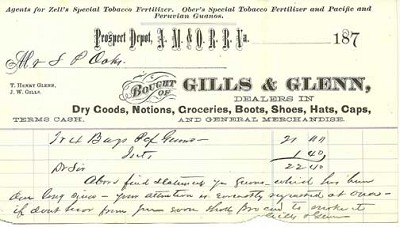 Agents for Zell's Special Tobacco Fertilizer. Ober's Special Tobacco Fertilizer and Pacific and
Peruvian Guanos.
Prospect Depot, A. M. & O. R. R. Va. 187
Mr S P Oaks
T. Henry Glenn,
J. W. Gills.
BOUGHT OF GILLS & GLENN,
DEALERS IN
Dry Goods, Notions, Groceries, Boots, Shoes, Hats, Caps,
TERMS CASH. AND GENERAL MERCHANDISE.
Bags 21 00
Int 1 40
Dr Sir 22 40
Above find statement guano which has been
due long since your attention is earnestly requested at once
if dont hear from you soon shall to
Gills & Glenn